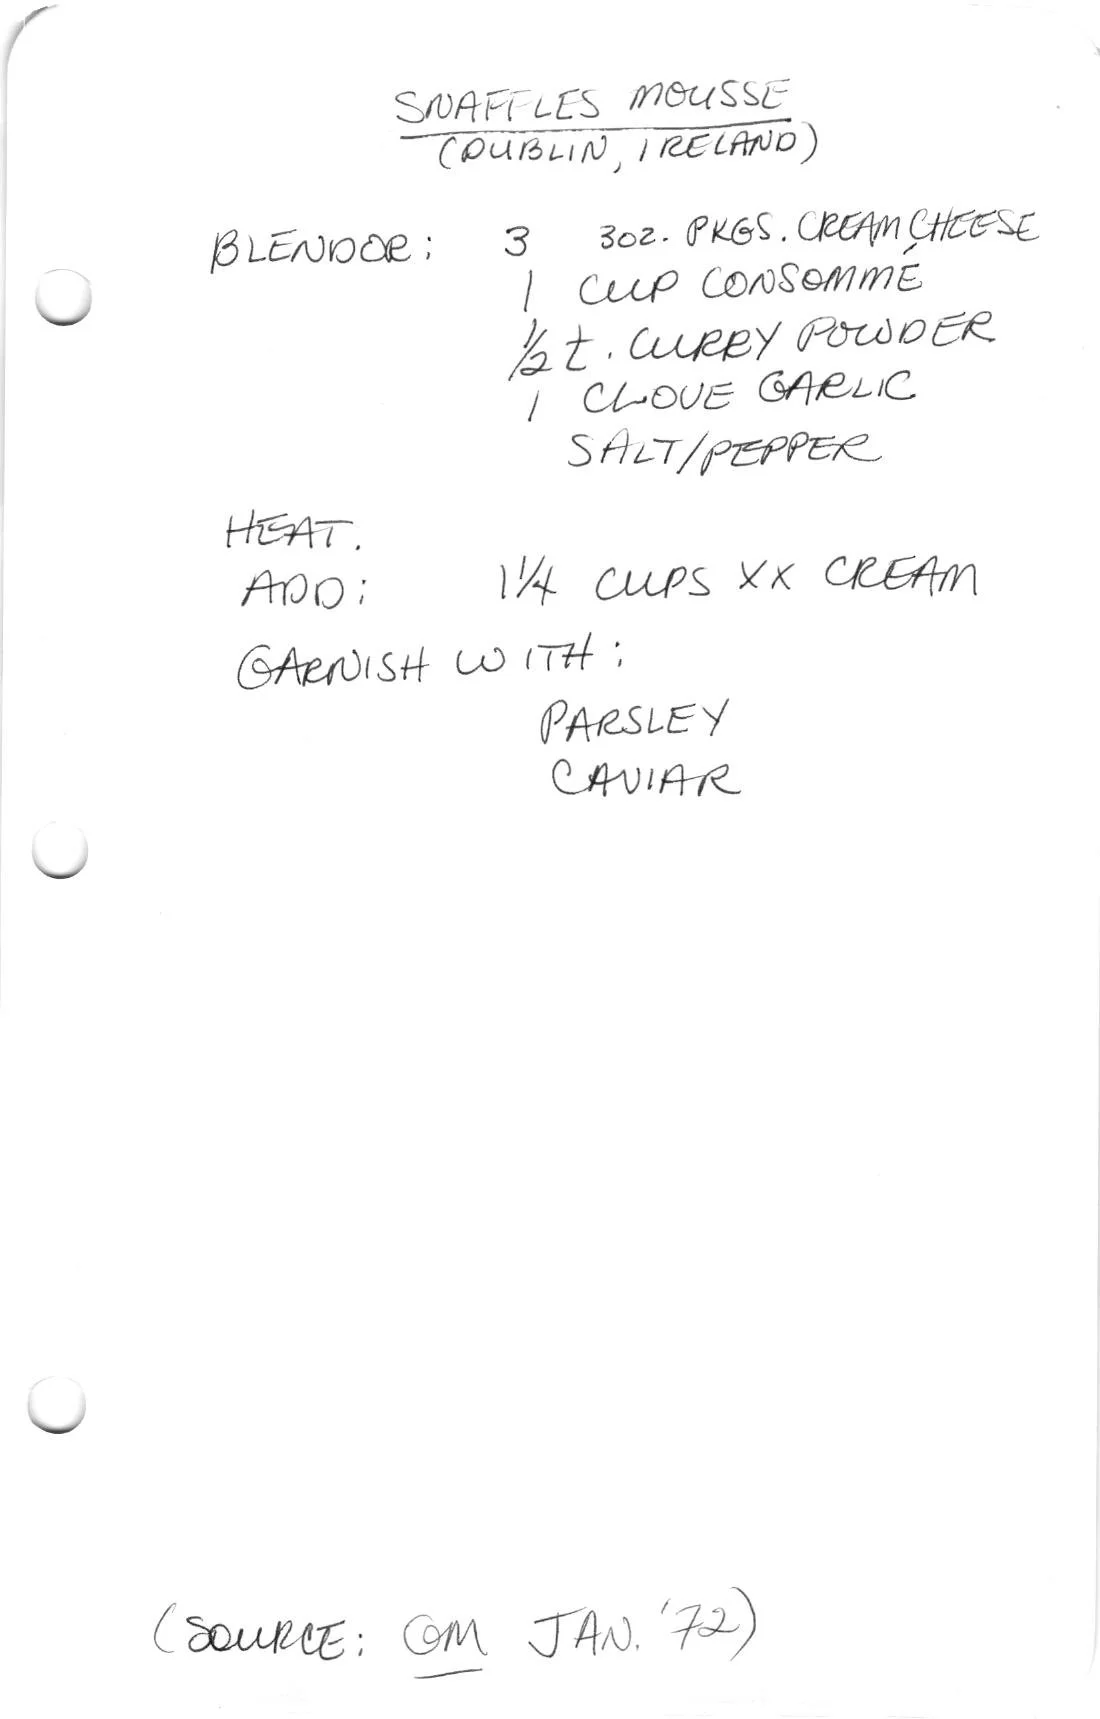 SNAFFLES MOUSSE
(DUBLIN, IRELAND)
BLENDOR: 3 3OZ. PKGS. CREAM CHEESE
1 CUP CONSOMMÉ
½ t. CURRY POWDER
1 CLOVE GARLIC
SALT/PEPPER
HEAT.
ADD: 1¼ CUPS XX CREAM
GARNISH WITH:
PARSLEY
CAVIAR
(SOURCE: GM JAN. '72)